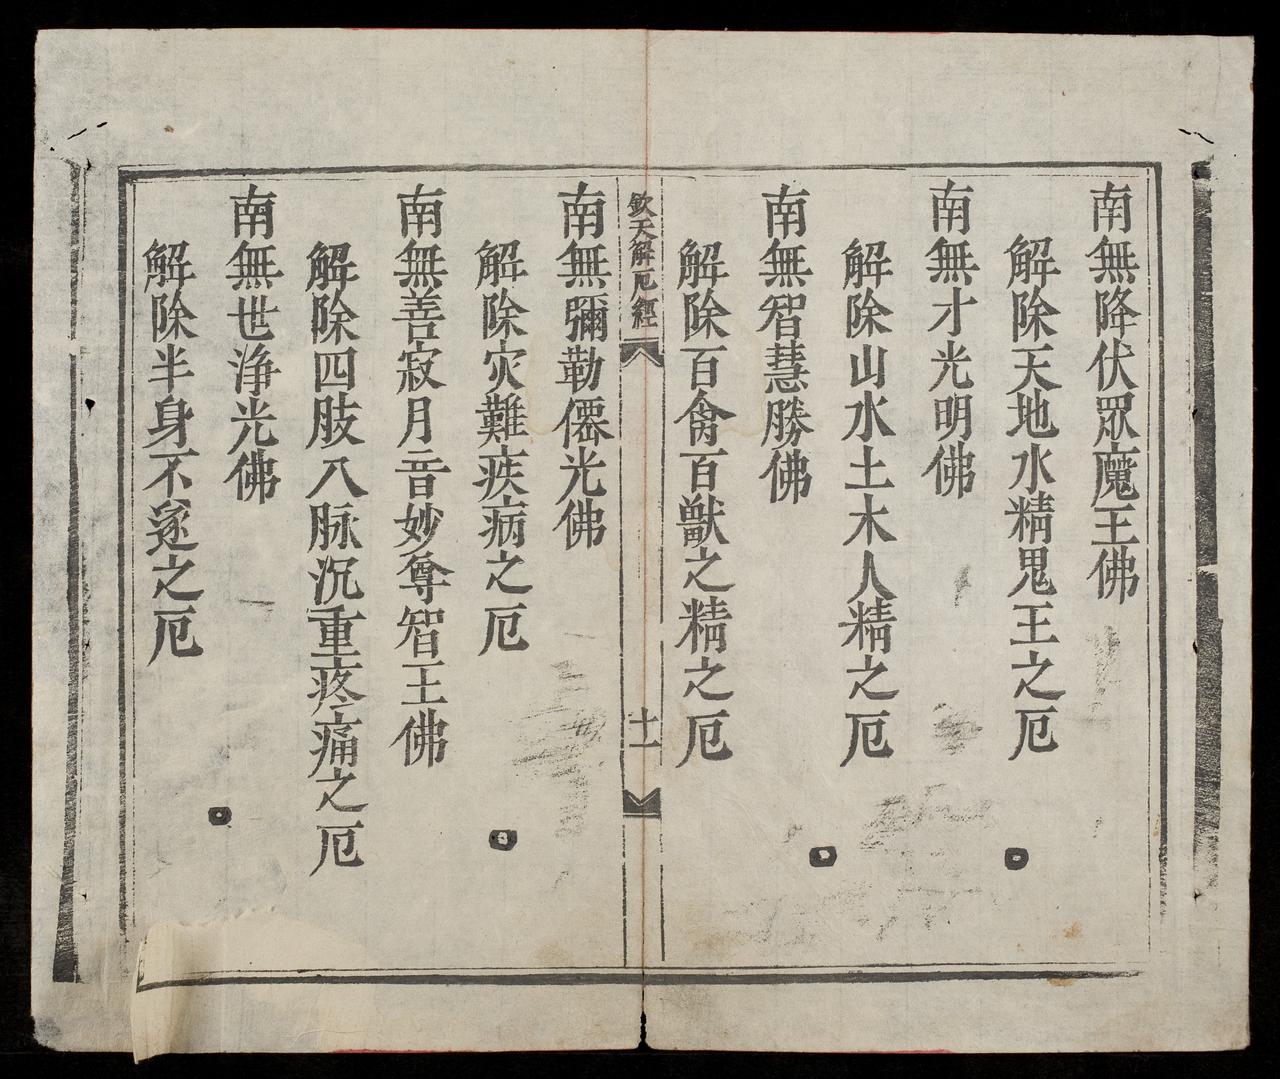 南無降伏眾魔王佛
解除天地水精鬼王之厄
南無才光明佛
解除山水土木人精之厄
南無智慧勝佛
解除百禽百獸之精之厄
欽天解厄經
十一
南無彌勒僊光佛
解除灾難疾病之厄
南無善寂月音妙尊智王佛
解除四肢八脉沉重疼痛之厄
南無世淨光佛
解除半身不遂之厄